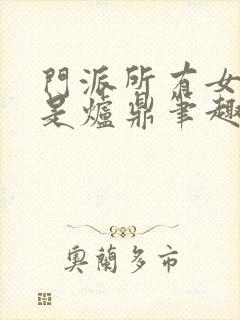 門派所有女
是爐鼎筆趣
奧蘭多市